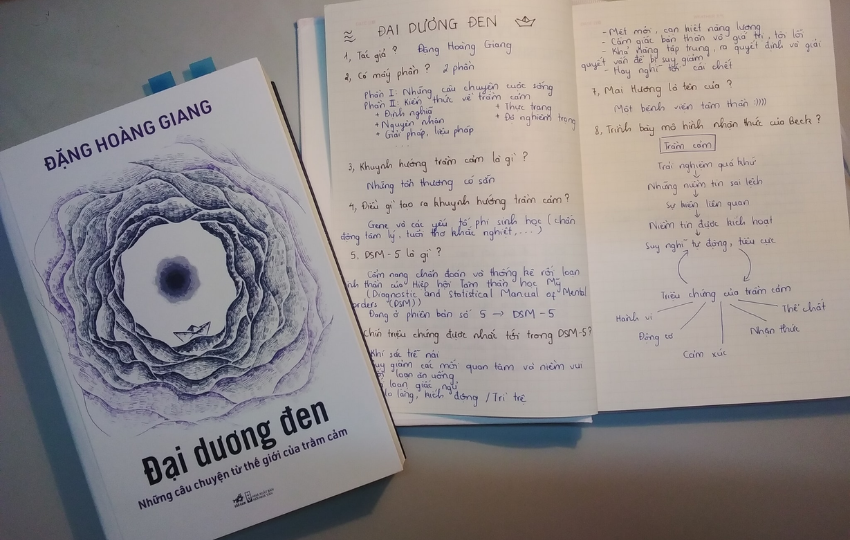 ĐẶNG HOÀNG GIANG
Đại dương đen
Những câu chuyện từ thế giới của trầm cảm
ĐẠI DƯƠNG ĐEN
1, Tác giả? Đặng Hoàng Giang
2, Có mấy phần? 2 phần
Phần I: Những câu chuyện cuộc sống
Phần II: Kiến thức về trầm cảm
+ Định nghĩa + Thực trạng
+ Nguyên nhân + Độ nghiêm trọng
+ Giải pháp, liệu pháp
3, Khuynh hướng trầm cảm là gì?
Những tổn thương có sẵn
4, Điều gì tạo ra khuynh hướng trầm cảm?
Gene và các yếu tố phi sinh học (chấn
động tâm lý, tuổi thơ khắc nghiệt,...)
5. DSM-5 là gì?
Cẩm nang chẩn đoán và thống kê rối loạn
thần của Hiệp hội Tâm thần học Mỹ
(Diagnostic and Statistical Manual of Mental
orders (DSM))
Đang ở phiên bản số 5 → DSM-5
Chín triệu chứng được nhắc tới trong DSM-5?
Khí sắc trễ nải
uy giảm các mối quan tâm và niềm vui
loạn ăn uống
loạn giấc ngủ
lo lắng, kích động / Trì trệ
- Mệt mỏi, cạn kiệt năng lượng
- Cảm giác bản thân vô giá trị, tội lỗi
- Khả năng tập trung, ra quyết định và giải
quyết vấn đề bị suy giảm
- Hay nghĩ tới cái chết
7, Mai Hương là tên của?
Một bệnh viện tâm thần !)))
8, Trình bày mô hình nhận thức của Beck?
Trầm cảm
Trải nghiệm quá khứ
Những niềm tin sai lệch
Sự kiện liên quan
Niềm tin được kích hoạt
Suy nghĩ tự động, tiêu cực
Triệu chứng của trầm cảm
Hành vi
Động cơ
Cảm xúc
Nhận thức
Thể chất